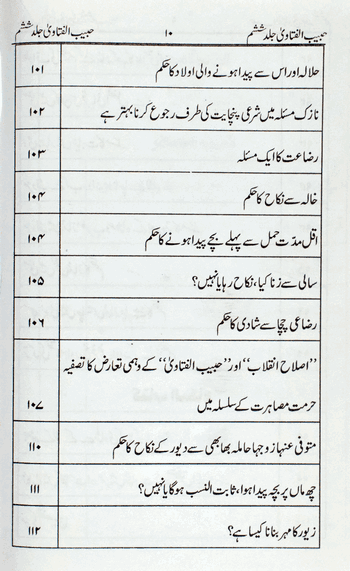 حبیب الفتاویٰ جلد ششم ۱۰ حبیب الفتاویٰ جلد ششم
حلالہ اور اس سے پیدا ہونے والی اولاد کا حکم ۱۰۱
نازک مسئلہ میں شرعی پنچایت کی طرف رجوع کرنا بہتر ہے ۱۰۲
رضاعت کا ایک مسئلہ ۱۰۳
خالہ سے نکاح کا حکم ۱۰۴
اقل مدّت حمل سے پہلے بچے پیدا ہونے کا حکم ۱۰۴
سالی سے زنا کیا، نکاح رہا یا نہیں؟ ۱۰۵
رضاعی چچا سے شادی کا حکم ۱۰۶
’’اصلاح انقلاب‘‘ اور ’’حبیب الفتاویٰ‘‘ کے وہمی تعارض کا تصفیہ
حرمت مصاہرت کے سلسلہ میں ۱۰۷
متوفی عنہا زوجہا حاملہ بھابھی سے دیور کے نکاح کا حکم ۱۱۰
چھ ماں پر بچہ پیدا ہوا، ثابت النسب ہوگا یا نہیں؟ ۱۱۱
زیور کا مہر بنانا کیسا ہے؟ ۱۱۲